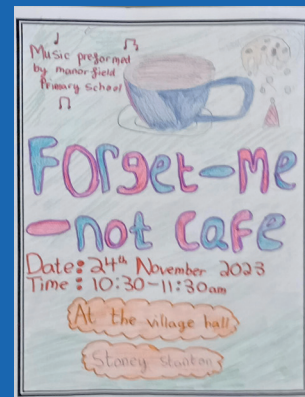 Music preformed
by manorfield
Primary School
Forget-Me
-not cafe
Date: 24th November 2023
Time: 10:30-11:30am
At the village hall,
Stoney Stanton